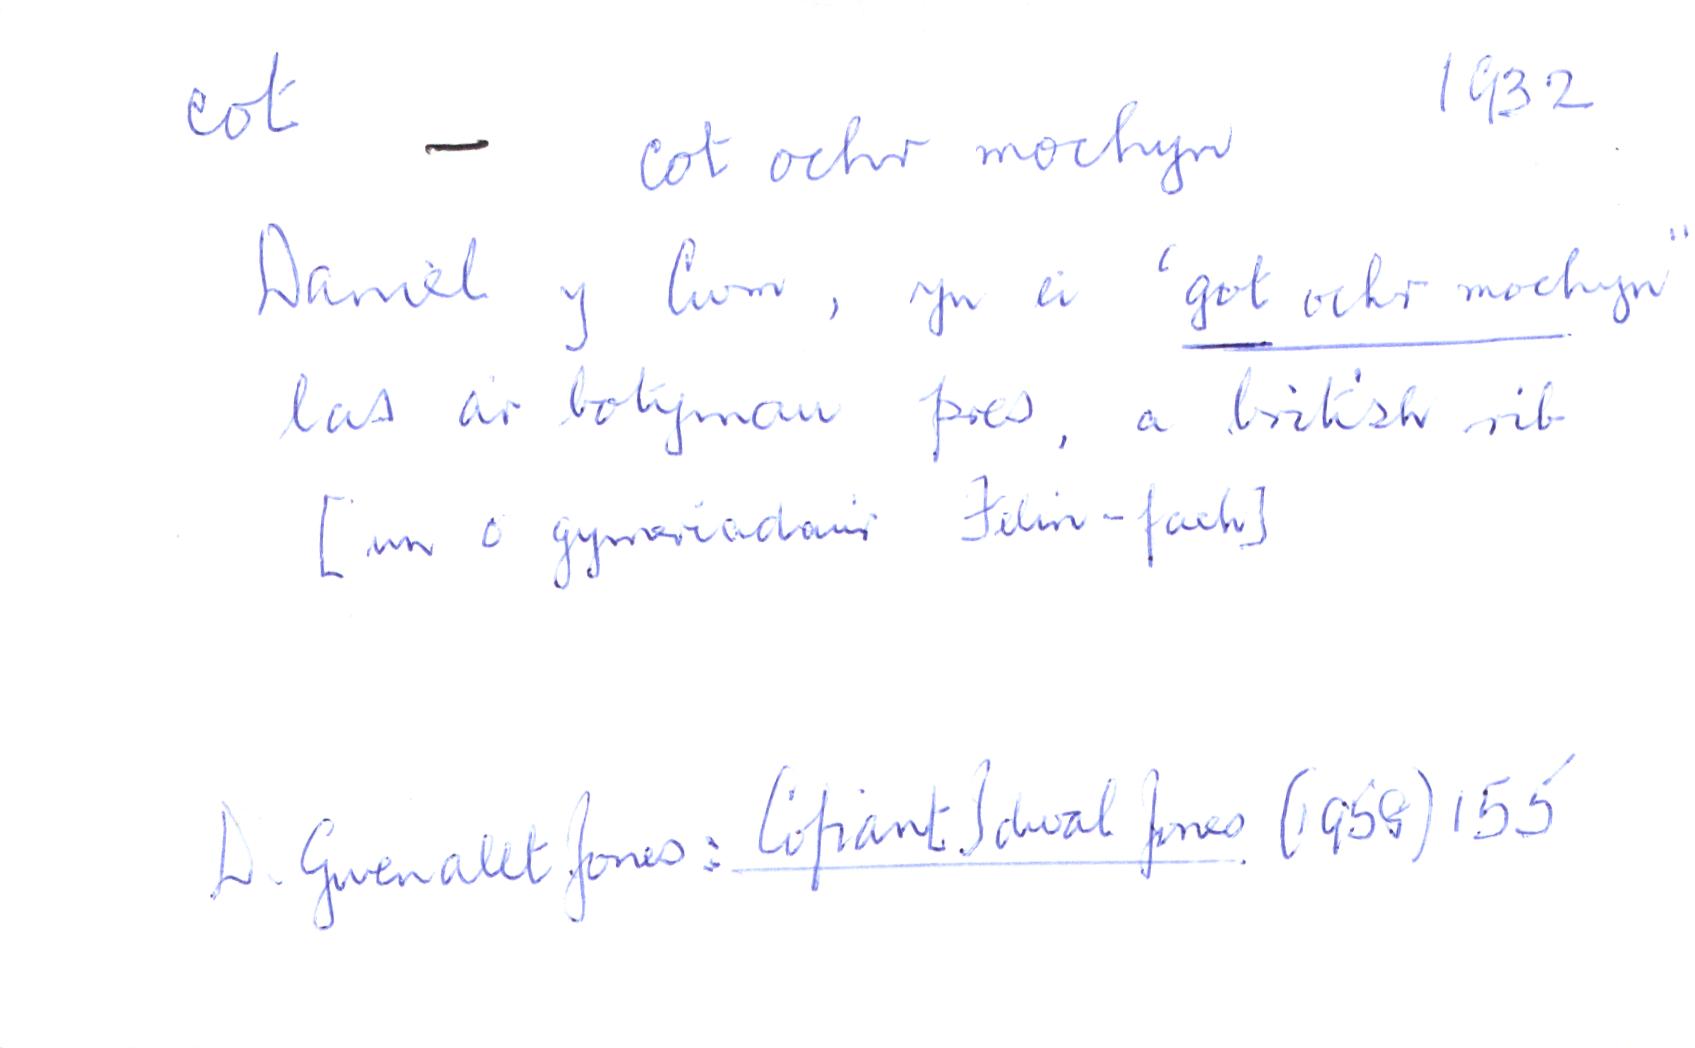 cot — cot ochr mochyn 1932
Daniel y Cwm, yn ei "got ochr mochyn"
las a'r botymau pres, a british rib
[un o gymeriadau Felin-fach]
D. Gwenallt Jones: Cofiant Idwal Jones (1958) 155